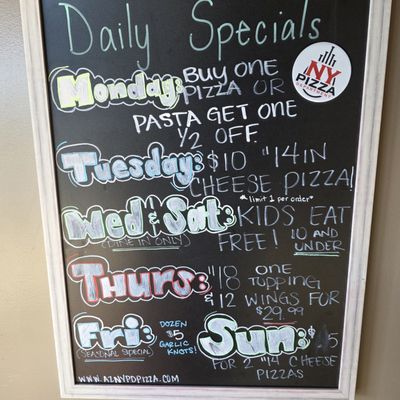 Daily Specials
Monday: BUY ONE
PIZZA OR
PASTA GET ONE
1/2 OFF
NY
PIZZA
DEPARTMENT
Tuesday: $10 "14IN
CHEESE PIZZA!
*limit 1 per order*
Wed & Sat: KIDS EAT
(DINE IN ONLY) FREE! 10 AND
UNDER
Thurs: "18 ONE
TOPPING
& 12 WINGS FOR
$29.99
Fri: DOZEN
$5
GARLIC
KNOTS!
(SEASONAL SPECIAL)
Sun:
FOR 2 "14 CHEESE
PIZZAS
WWW.AZNYPDPIZZA.COM